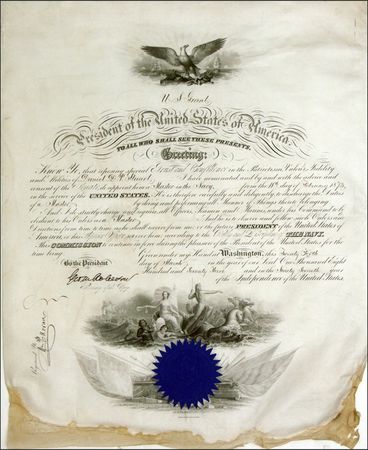 U. S. Grant
President of the United States of America.
TO ALL WHO SHALL SEE THESE PRESENTS,
Greeting:
Know Ye, that reposing special Trust and Confidence in the Patriotism, Valor, Fidelity
and Abilities of Daniel I have nominated and by and with the advice and
consent of the Senate do appoint him a Master in the Navy, from the day of February 1873,
in the service of the UNITED STATES. He is therefore carefully and diligently to discharge the Duties
of a Master by doing and performing all Manner of Things thereto belonging.
And I do strictly charge and require all Officers, Seamen and Marines, under his Command to be
obedient to his Orders as a Master. And he is to observe and follow such Orders and
Directions from time to time as he shall receive from me or the future PRESIDENT of the United States of
America, or his Superior Officer set over him, according to the Rules and Discipline of THE NAVY.
This COMMISSION to continue in force during the pleasure of the President of the United States for the
time being. Given under my Hand at Washington, this Twenty
By the President of March in the year of our Lord One Thousand Eight
Geo M Robeson Hundred and Seventy and in the Ninety Seventh year
Secretary of the Navy. of the Independence of the United States.
Registered No